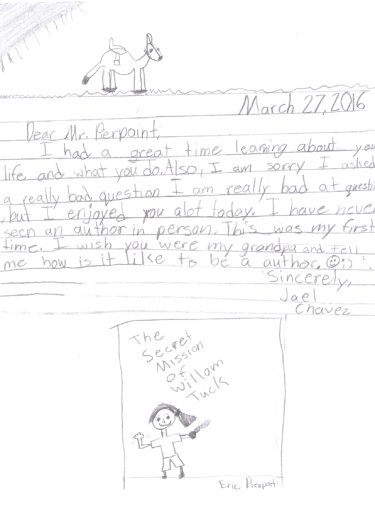 March 27, 2016
Dear Mr. Pierpoint,
I had a great time learning about you
life and what you do. Also, I am sorry I asked
a really bad question I am really bad at questi
, but I enjoyed you alot today. I have neve
seen an author in person. This was my first
time. I wish you were my grandpa and tell
me how is it like to be a author. ☺;)
Sincerely,
Jael
Chavez
The
Secret
Mission
of
Willam
Tuck
Eric Pierpoint